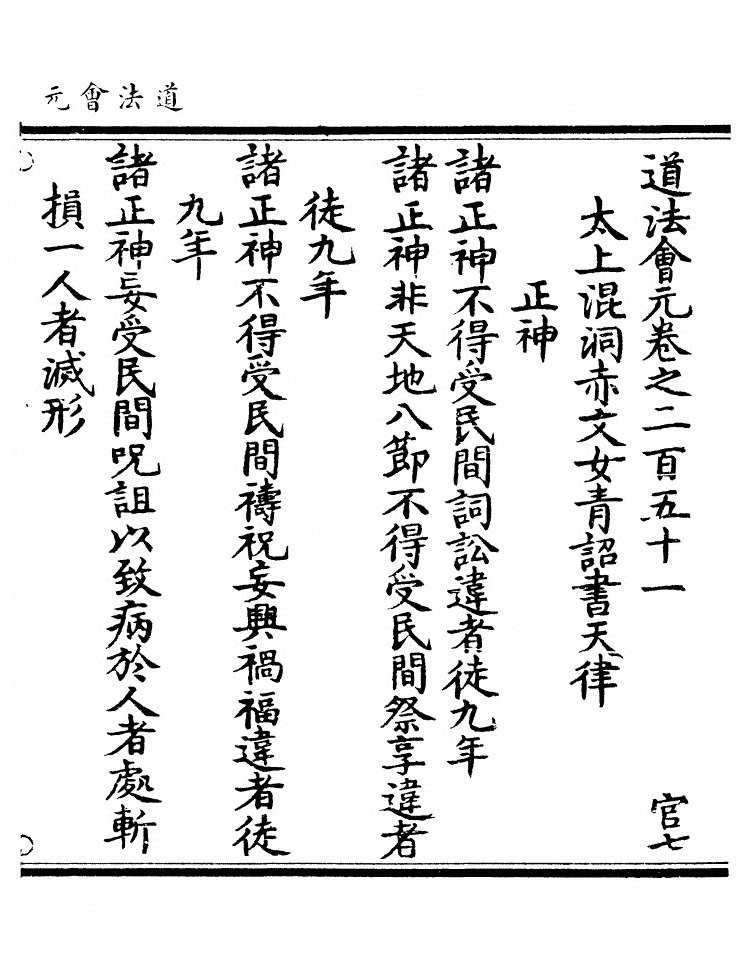 道法會元
道法會元卷之二百五十一
官七
太上混洞赤文女青詔書天律
正神
諸正神不得受民間詞訟違者徒九年
諸正神非天地八節不得受民間祭享違者
徒九年
諸正神不得受民間禱祝妄興禍福違者徒
九年
諸正神妄受民間呪詛以致病於人者處斬
損一人者滅形